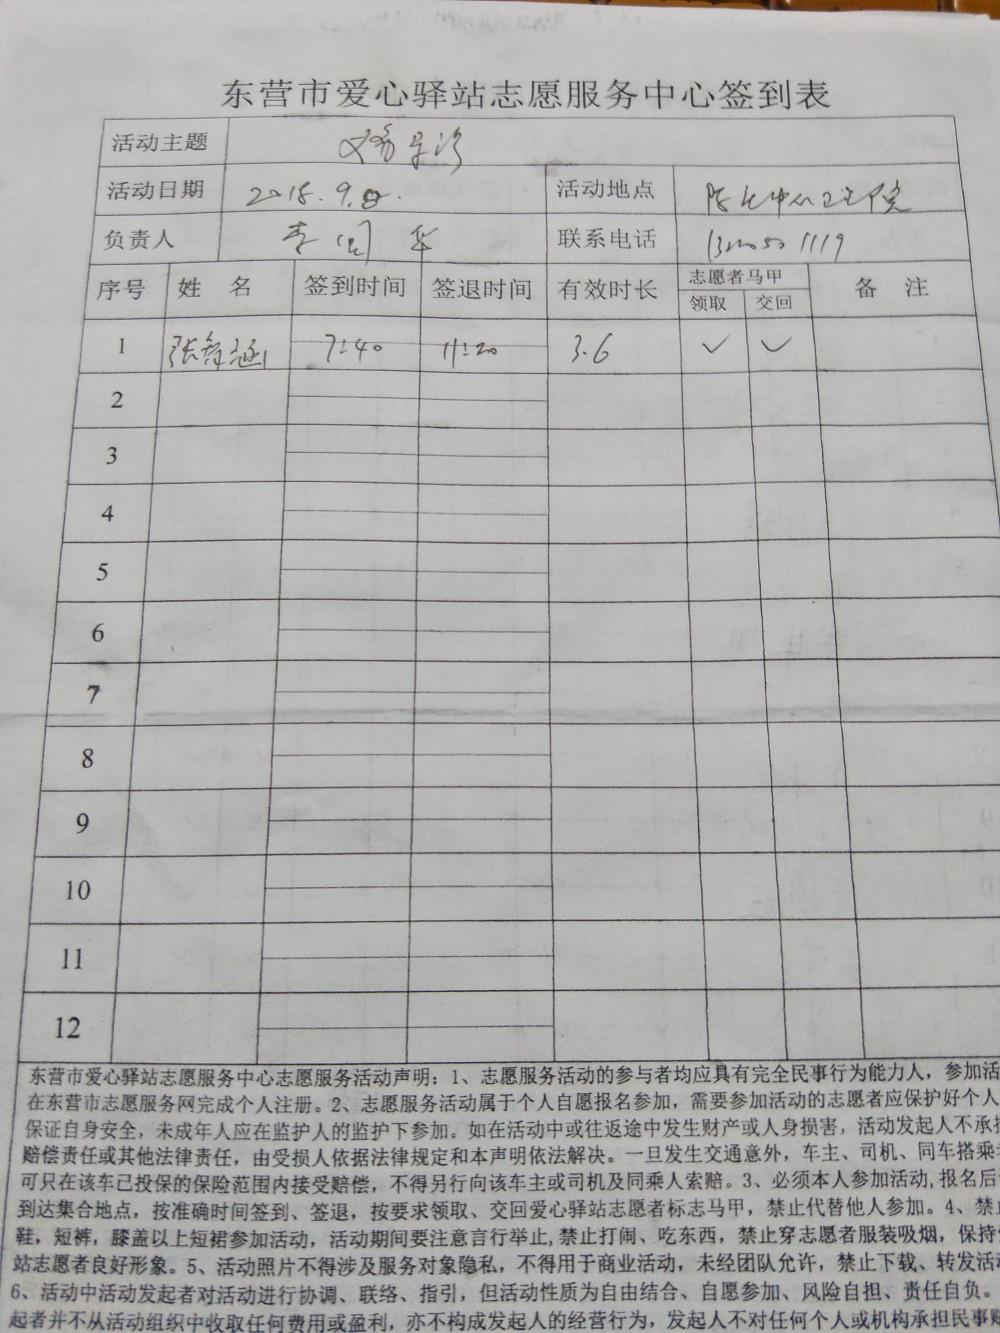 东营市爱心驿站志愿服务中心签到表
活动主题
活动日期 2018.9.8. 活动地点
负责人 李国华 联系电话
序号 姓 名 签到时间 签退时间 有效时长 志愿者马甲 备 注
领取 交回
1 7:40 11:20 3.6 ✓ ✓
2
3
4
5
6
7
8
9
10
11
12
东营市爱心驿站志愿服务中心志愿服务活动声明：1、志愿服务活动的参与者均应具有完全民事行为能力人，参加活
在东营市志愿服务网完成个人注册。2、志愿服务活动属于个人自愿报名参加，需要参加活动的志愿者应保护好个人
保证自身安全，未成年人应在监护人的监护下参加。如在活动中或往返途中发生财产或人身损害，活动发起人不承担
赔偿责任或其他法律责任，由受损人依据法律规定和本声明依法解决。一旦发生交通意外，车主、司机、同车搭乘
可只在该车已投保的保险范围内接受赔偿，不得另行向该车主或司机及同乘人索赔。3、必须本人参加活动,报名后
到达集合地点，按准确时间签到、签退，按要求领取、交回爱心驿站志愿者标志马甲，禁止代替他人参加。4、禁止
鞋，短裤，膝盖以上短裙参加活动，活动期间要注意言行举止,禁止打闹、吃东西，禁止穿志愿者服装吸烟，保持
站志愿者良好形象。5、活动照片不得涉及服务对象隐私，不得用于商业活动，未经团队允许，禁止下载、转发活动
6、活动中活动发起者对活动进行协调、联络、指引，但活动性质为自由结合、自愿参加、风险自担、责任自负。
起者并不从活动组织中收取任何费用或盈利，亦不构成发起人的经营行为，发起人不对任何个人或机构承担民事